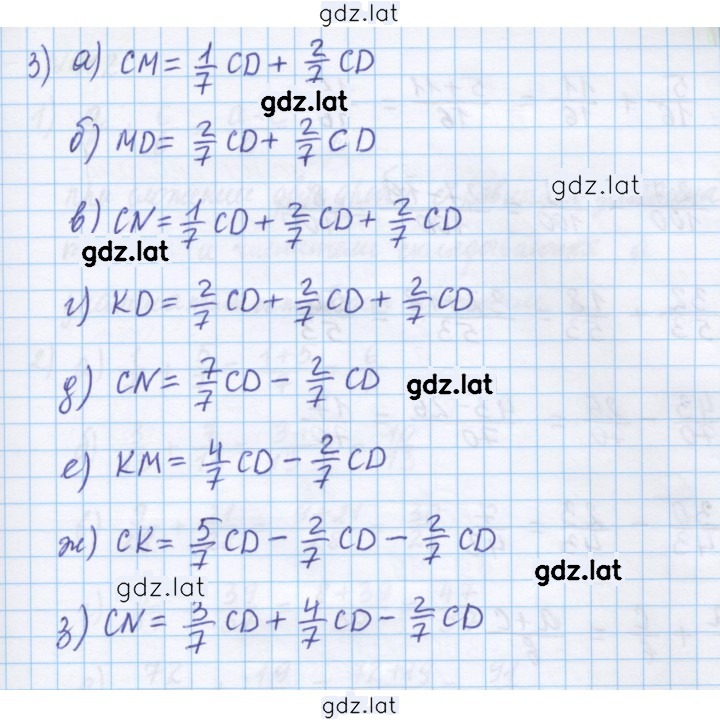 gdz.lat
3) а) CM = 1/7 CD + 2/7 CD
gdz.lat
б) MD = 2/7 CD + 2/7 CD
gdz.lat
в) CN = 1/7 CD + 2/7 CD + 2/7 CD
gdz.lat
г) KD = 2/7 CD + 2/7 CD + 2/7 CD
д) CN = 7/7 CD - 2/7 CD
gdz.lat
е) KM = 4/7 CD - 2/7 CD
ж) CK = 5/7 CD - 2/7 CD - 2/7 CD
gdz.lat
gdz.lat
з) CN = 3/7 CD + 4/7 CD - 2/7 CD
gdz.lat